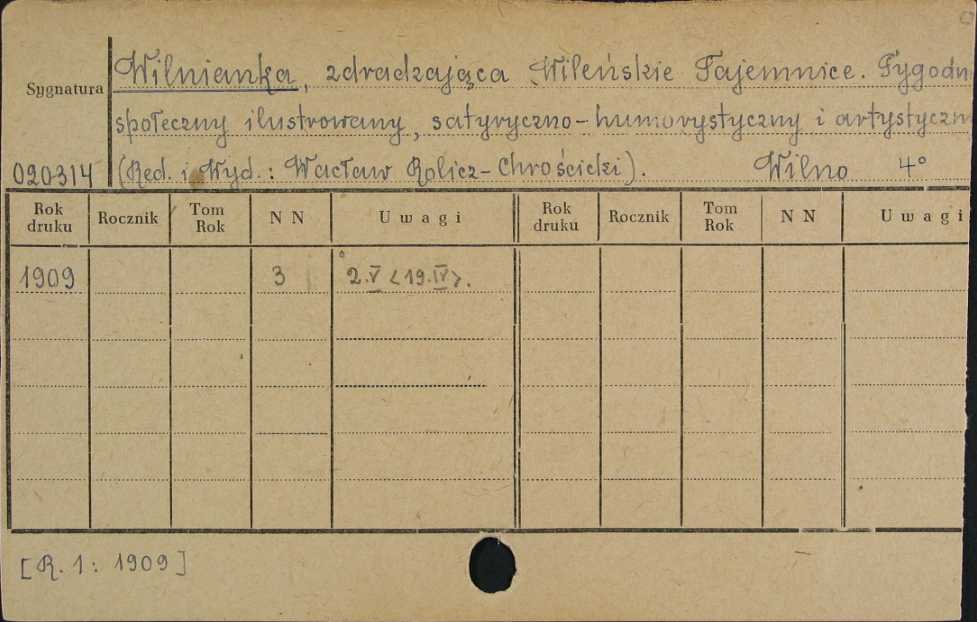 Sygnatura
Wilnianka, zdradzająca Wileńskie Tajemnice. Tygodn
społeczny ilustrowany, satyryczno-humorystyczny i artystyczn
020314 (Red. i Wyd.: Wacław Rolicz-Chrościcki). Wilno 4°
Rok druku Rocznik Tom Rok N N Uwagi Rok druku Rocznik Tom Rok N N Uwagi
1909 3 2.V <19.IV>.
[R. 1: 1909]